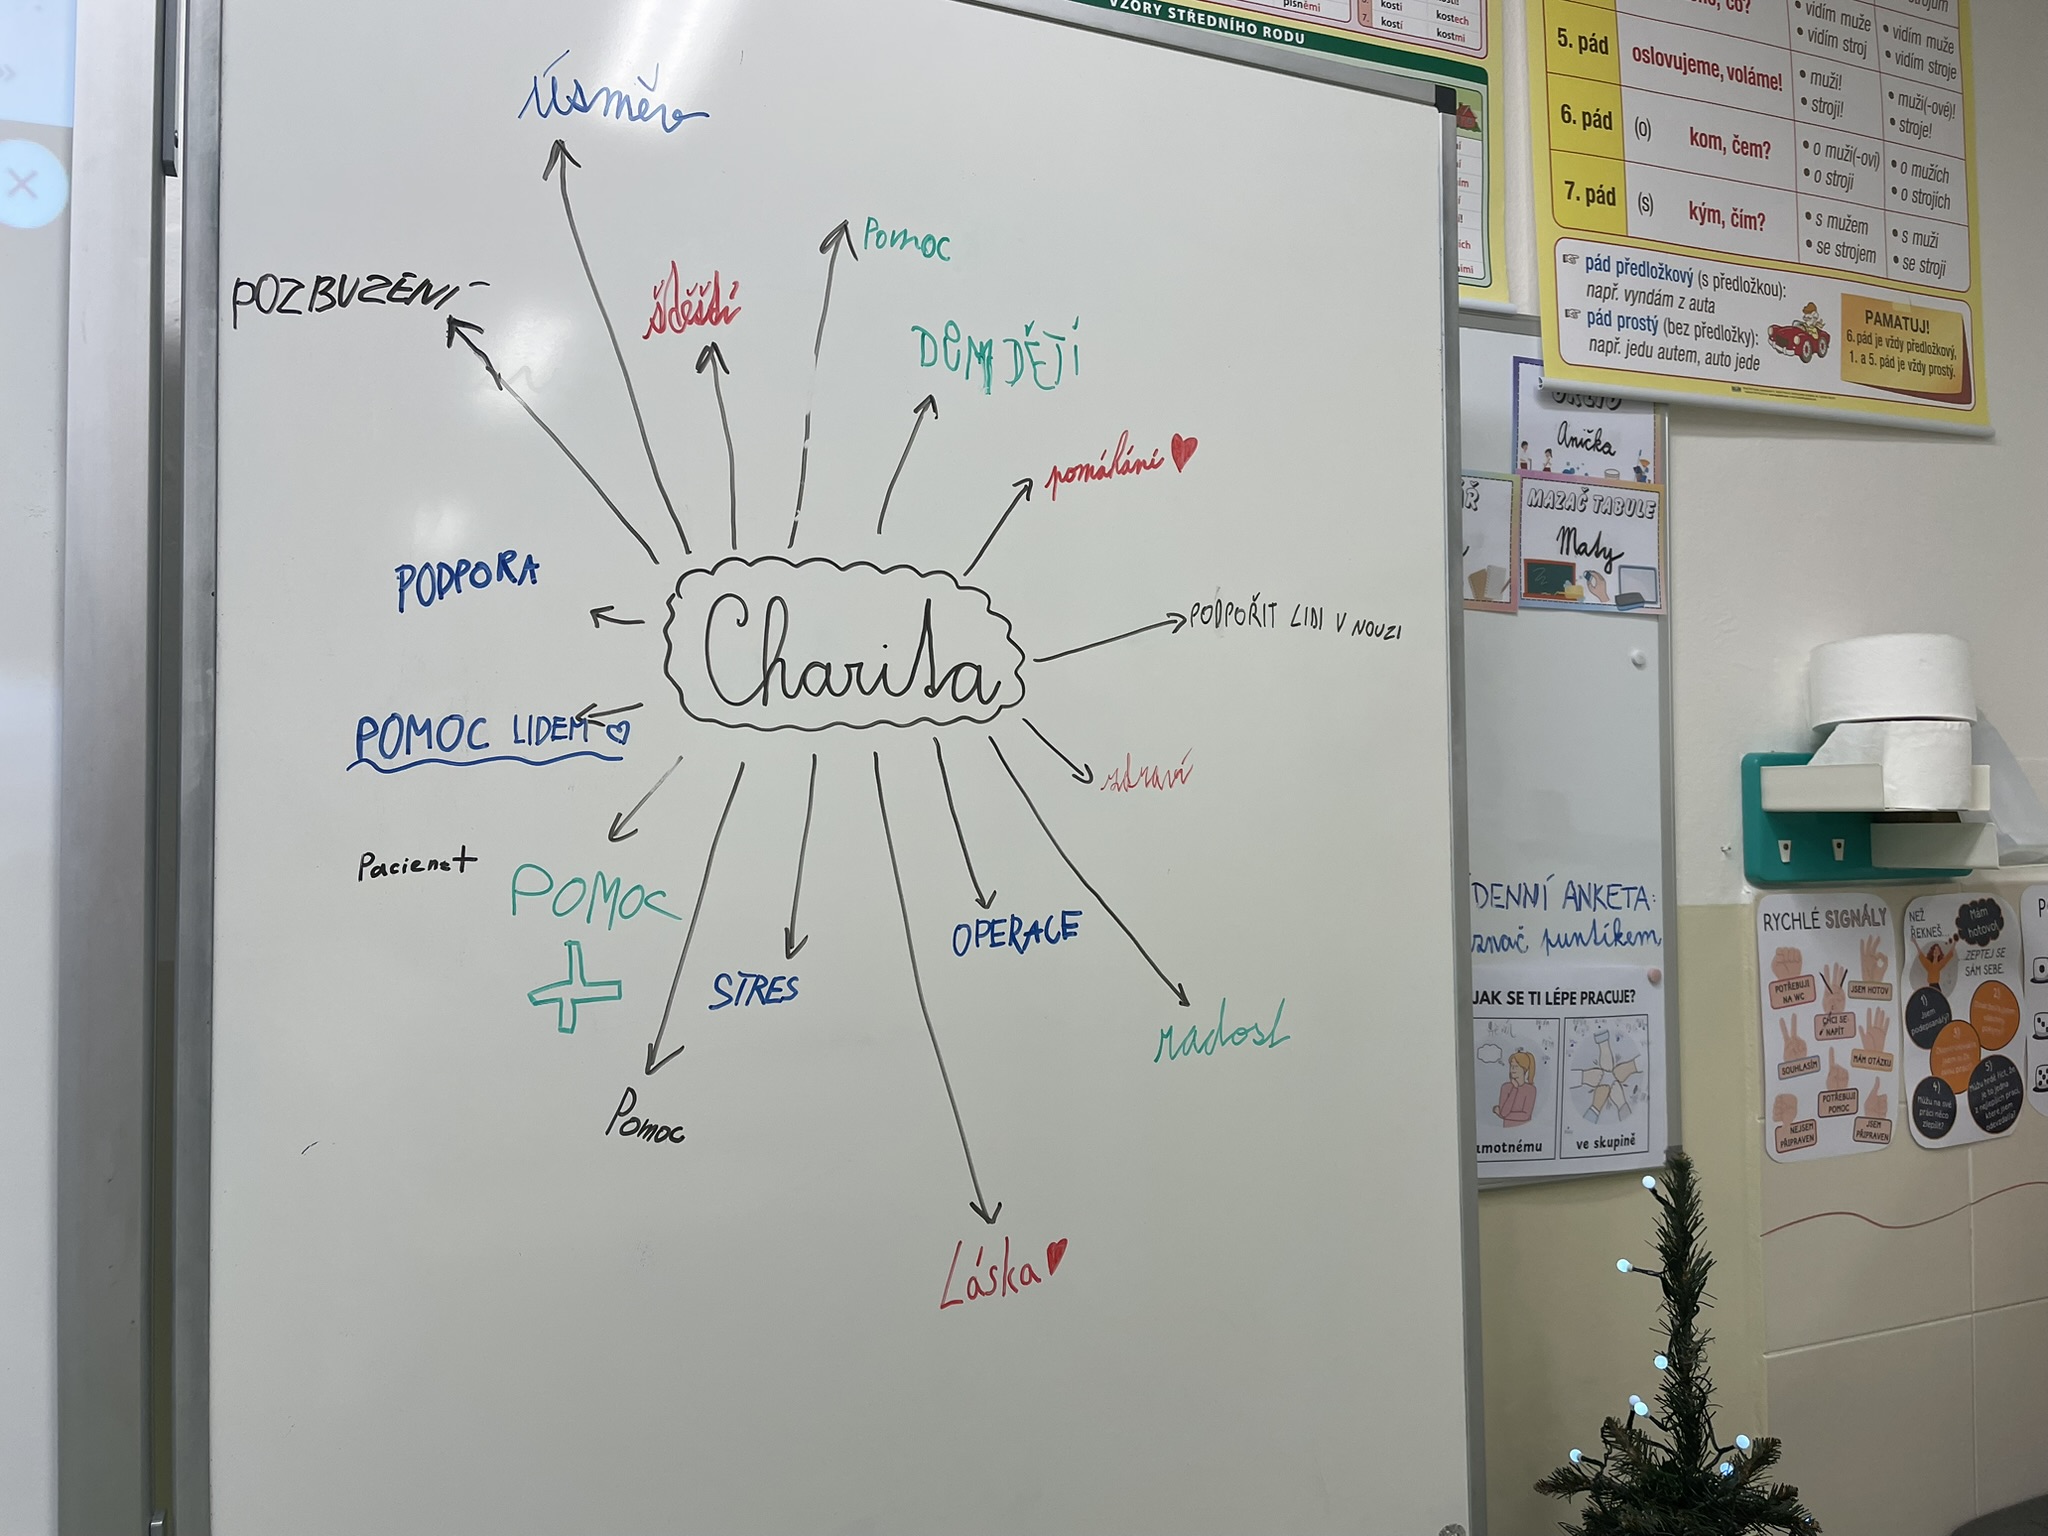 Úsměv
Pomoc
POZBUZENÍ
Štěstí
DEM DĚTÍ
pomáhání
PODPORA
Charita
PODPOŘIT LIDI V NOUZI
POMOC LIDEM
zdraví
Pacienet
POMOC
OPERACE
STRES
radost
Pomoc
Láska
VZORY STŘEDNÍHO RODU
písněmi
kosti
kostí
kostech
kostmi
7.
vidím muže
vidím stroj
vidím muže
vidím stroje
5. pád
oslovujeme, voláme!
muži!
stroji!
muži(-ové)!
stroje!
6. pád
(o)
kom, čem?
o muži(-ovi)
o stroji
o mužích
o strojích
7. pád
(s)
kým, čím?
s mužem
se strojem
s muži
se stroji
pád předložkový (s předložkou):
např. vyndám z auta
pád prostý (bez předložky):
např. jedu autem, auto jede
PAMATUJ!
6. pád je vždy předložkový,
1. a 5. pád je vždy prostý.
Anička
MAZAČ TABULE
Maty
DENNÍ ANKETA:
značˇ puntíkem
JAK SE TI LÉPE PRACUJE?
amotnému
ve skupině
RYCHLÉ SIGNÁLY
POTŘEBUJI
NA WC
CHCI SE
NAPÍT
JSEM HOTOV
SOUHLASÍM
MÁM OTÁZKU
POTŘEBUJI
POMOC
NEJSEM
PŘIPRAVEN
JSEM
PŘIPRAVEN
NEŽ
ŘEKNEŠ
Mám
hotovo!
ZEPTEJ SE
SÁM SEBE.
1)
Jsem
podepsaný?
2)
3)
4)
Můžu na své
práci něco
zlepšit?
5)